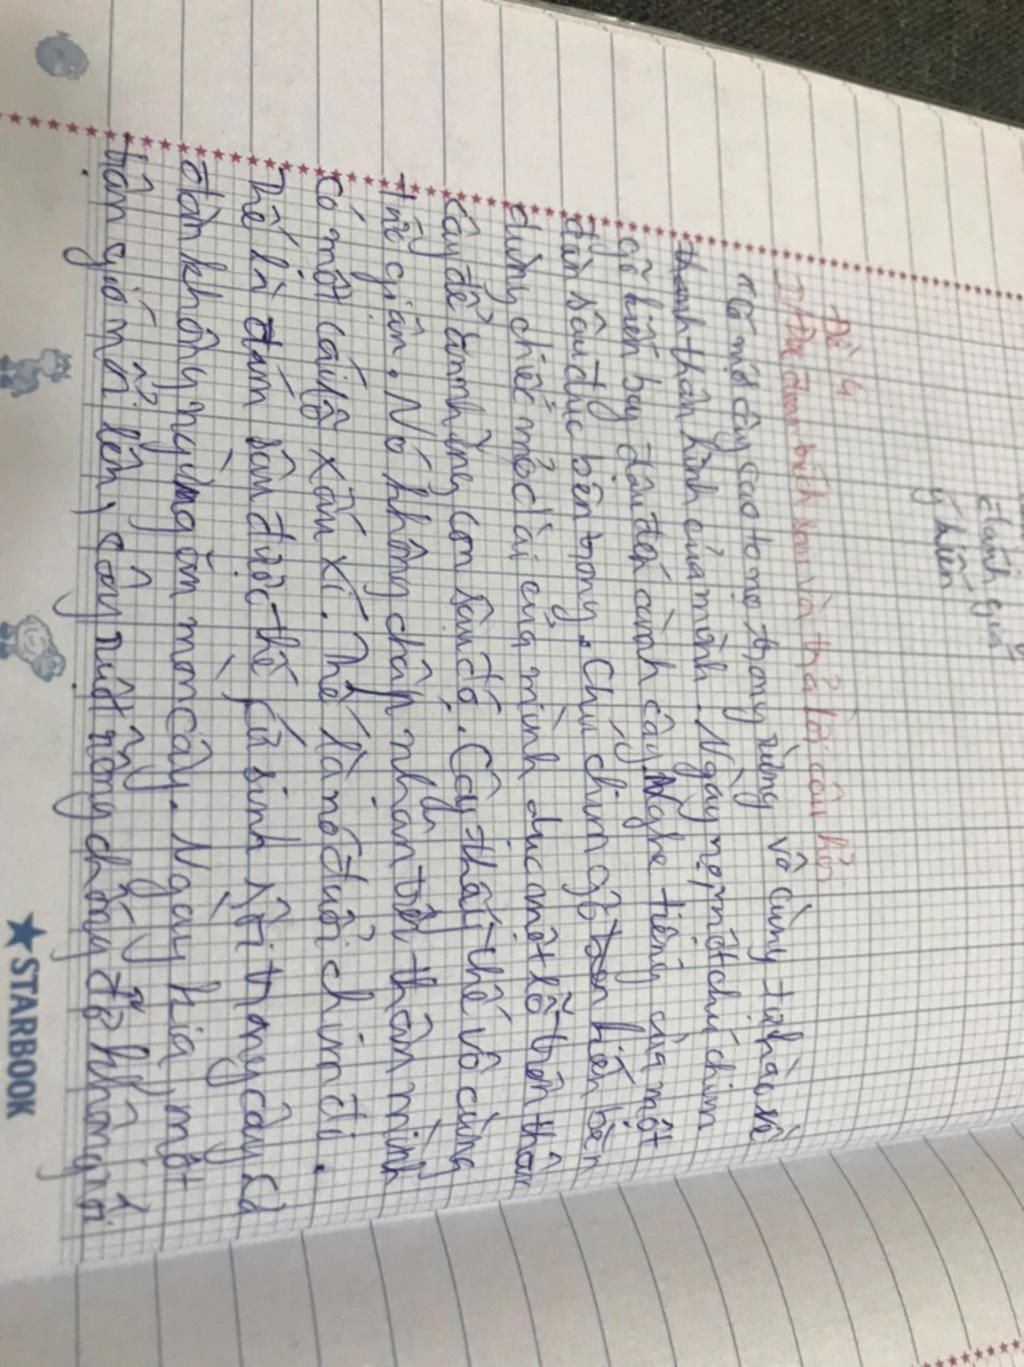 đánh giá
ý kiến
Đề 4
I. Đọc đoạn trích sau và trả lời câu hỏi
"Có một cây cao to nọ trong rừng vô cùng tự hào về
thanh thân hình của mình. Ngày nọ, một chú chim
gõ kiến bay đậu đến cành cây. Nghe tiếng của một
đàn sâu đục bên trong. Chú chim gõ kiến bèn
dùng chiếc mỏ dài của mình đục một lỗ trên thân
cây để ăn những con sâu đó. Cây thấy thế vô cùng
tức giận. Nó không chấp nhận trên thân mình
có một cái lỗ xấu xí. Thế là nó đuổi chim đi.
Thế là đám sâu được thế, cứ sinh sôi trong cây và
đàn không ngừng ăn mòn cây. Ngày kia, một
trận gió nổi lên, cây ruột rỗng chống đỡ không nổi
STARBOOK